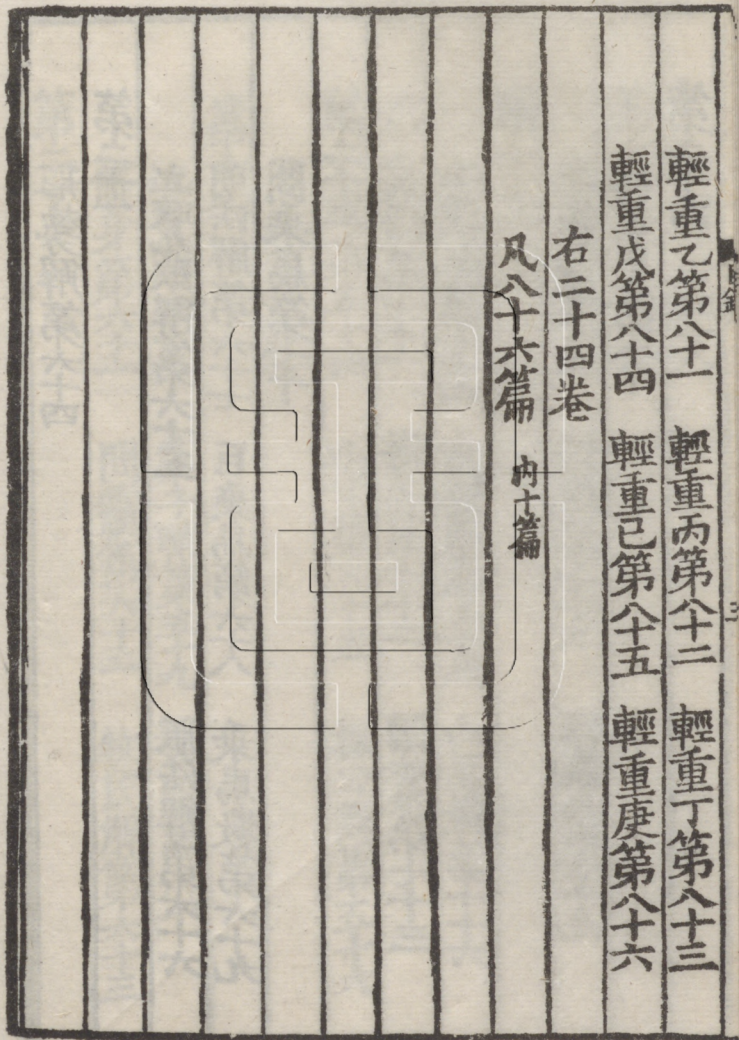 輕重乙第八十一　輕重丙第八十二　輕重丁第八十三
輕重戊第八十四　輕重己第八十五　輕重庚第八十六
右二十四卷
凡八十六篇　内十篇